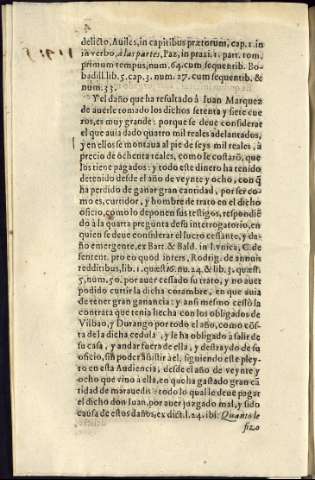 delicto, Auiles, in capitibus prætorum, cap. 1. in
in verbo, a las partes, Paz, in praxi. 1. part. tom.
primum tempus, num. 64. cum sequentib. Bo-
badill. lib. 5. cap. 3. num. 27. cum sequentib. &
num. 33.
Y el daño que ha resultado à Iuan Marquez
de auerle tomado los dichos setenta y siete cue
ros, es muy grande: porque se deue considerar
el que auia dado quatro mil reales adelantados,
y en ellos se montaua al pie de seys mil reales, à
precio de ochenta reales, como le costarõ, que
los tiene pagados: y todo este dinero ha tenido
detenido desde el año de veynte y ocho, con q̃
ha perdido de ganar gran cantidad, por ser co-
mo es, curtidor, y hombre de trato en el dicho
oficio, como lo deponen sus testigos, respondiẽ
do à la quarta pregunta de su interrogatorio, en
quien se deue considerar el lucro cessante, y da-
ño emergente, ex Bart. & Bald. in l. vnica, C. de
sentent. pro eo quod inters, Rodrig. de annuis
redditibus, lib. 1. quæstio. nu. 24. & lib. 3. quæst.
5, num. 50. por auer cessado su trato, y no auer
podido curtir la dicha corambre, en que auia
de tener gran ganancia: y ansi mesmo cessò la
contrata que tenia hecha con los obligados de
Vilbao, y Durango por todo el año, como cõs-
ta de la dicha cedula, y le ha obligado à salir de
su casa, y andar fuera della, y destraydo de su
oficio, sin poder assistir à el, siguiendo este pley-
to en esta Audiencia, desde el año de veynte y
ocho que vino à ella, en que ha gastado gran cã
tidad de marauedis: todo lo qual le deue pagar
el dicho don Iuan, por auer juzgado mal, y sido
causa de estos daños, ex dict. l. 24. ibi: Quanto le
fizo